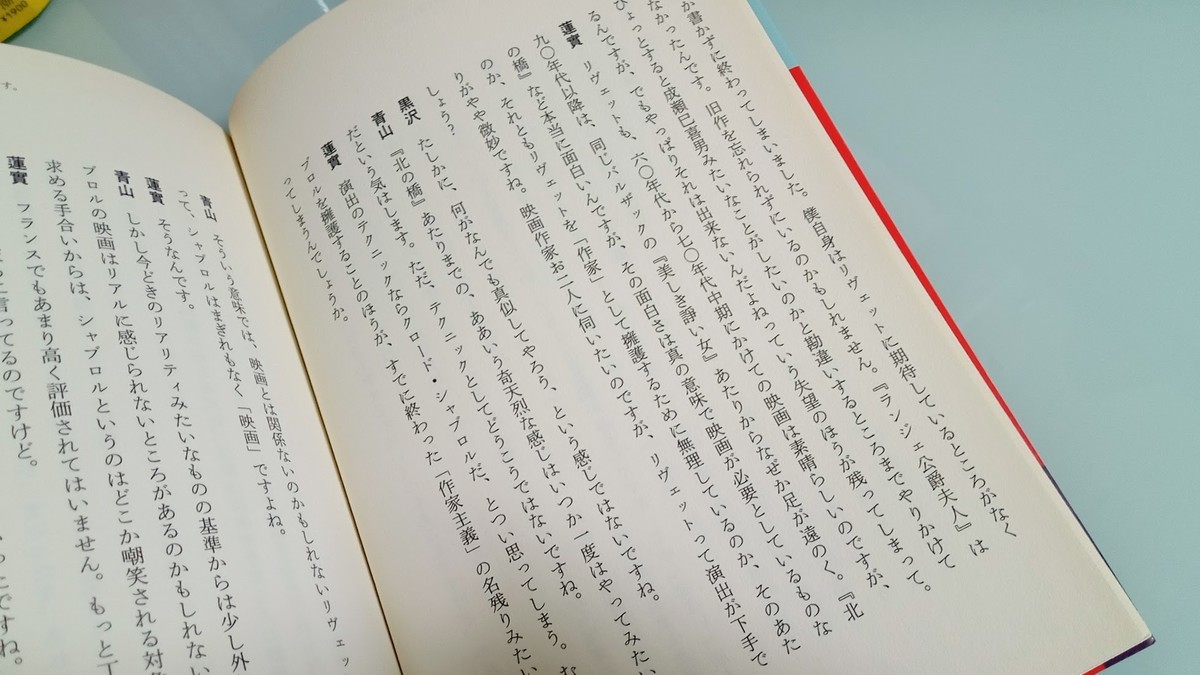 か書かずに終わってしまいました。僕自身はリヴェットに期待しているところがなく
なかったんです。旧作を忘れられずにいるのかもしれません。『ランジェ公爵夫人』は
ひょっとすると成瀬巳喜男みたいなことがしたいのかと勘違いするところまでやりかけて
るんですが、でもやっぱりそれは出来ないんだよねっていう失望のほうが残ってしまって。
蓮實 リヴェットも、六〇年代から七〇年代中期にかけての映画は素晴らしいのですが、
九〇年代以降は、同じバルザックの『美しき諍い女』あたりからなぜか足が遠のく。『北
の橋』など本当に面白いんですが、その面白さは真の意味で映画が必要としているものな
のか、それともリヴェットを「作家」として擁護するために無理しているのか、そのあた
りがやや微妙ですね。映画作家お二人に伺いたいのですが、リヴェットって演出が下手で
しょう?
黒沢 たしかに、何がなんでも真似してやろう、という感じではないですね。
青山 『北の橋』あたりまでの、ああいう奇天烈な感じはいつか一度はやってみたい
だという気はします。ただ、テクニックとしてどうこうではないですね。
蓮實 演出のテクニックならクロード・シャブロルだ、とつい思ってしまう。
ブロルを擁護することのほうが、すでに終わった「作家主義」の名残りみたい
ってしまうんでしょうか。
青山 そういう意味では、映画とは関係ないのかもしれないリヴェッ
って、シャブロルはまぎれもなく「映画」ですよね。
蓮實 そうなんです。
青山 しかし今どきのリアリティみたいなものの基準からは少し外
ブロルの映画はリアルに感じられないところがあるのかもしれない
求める手合いからは、シャブロルというのはどこか嘲笑される対
蓮實 フランスでもあまり高く評価されてはいません。もっと
言ってるのですけど。
す。
¥1900